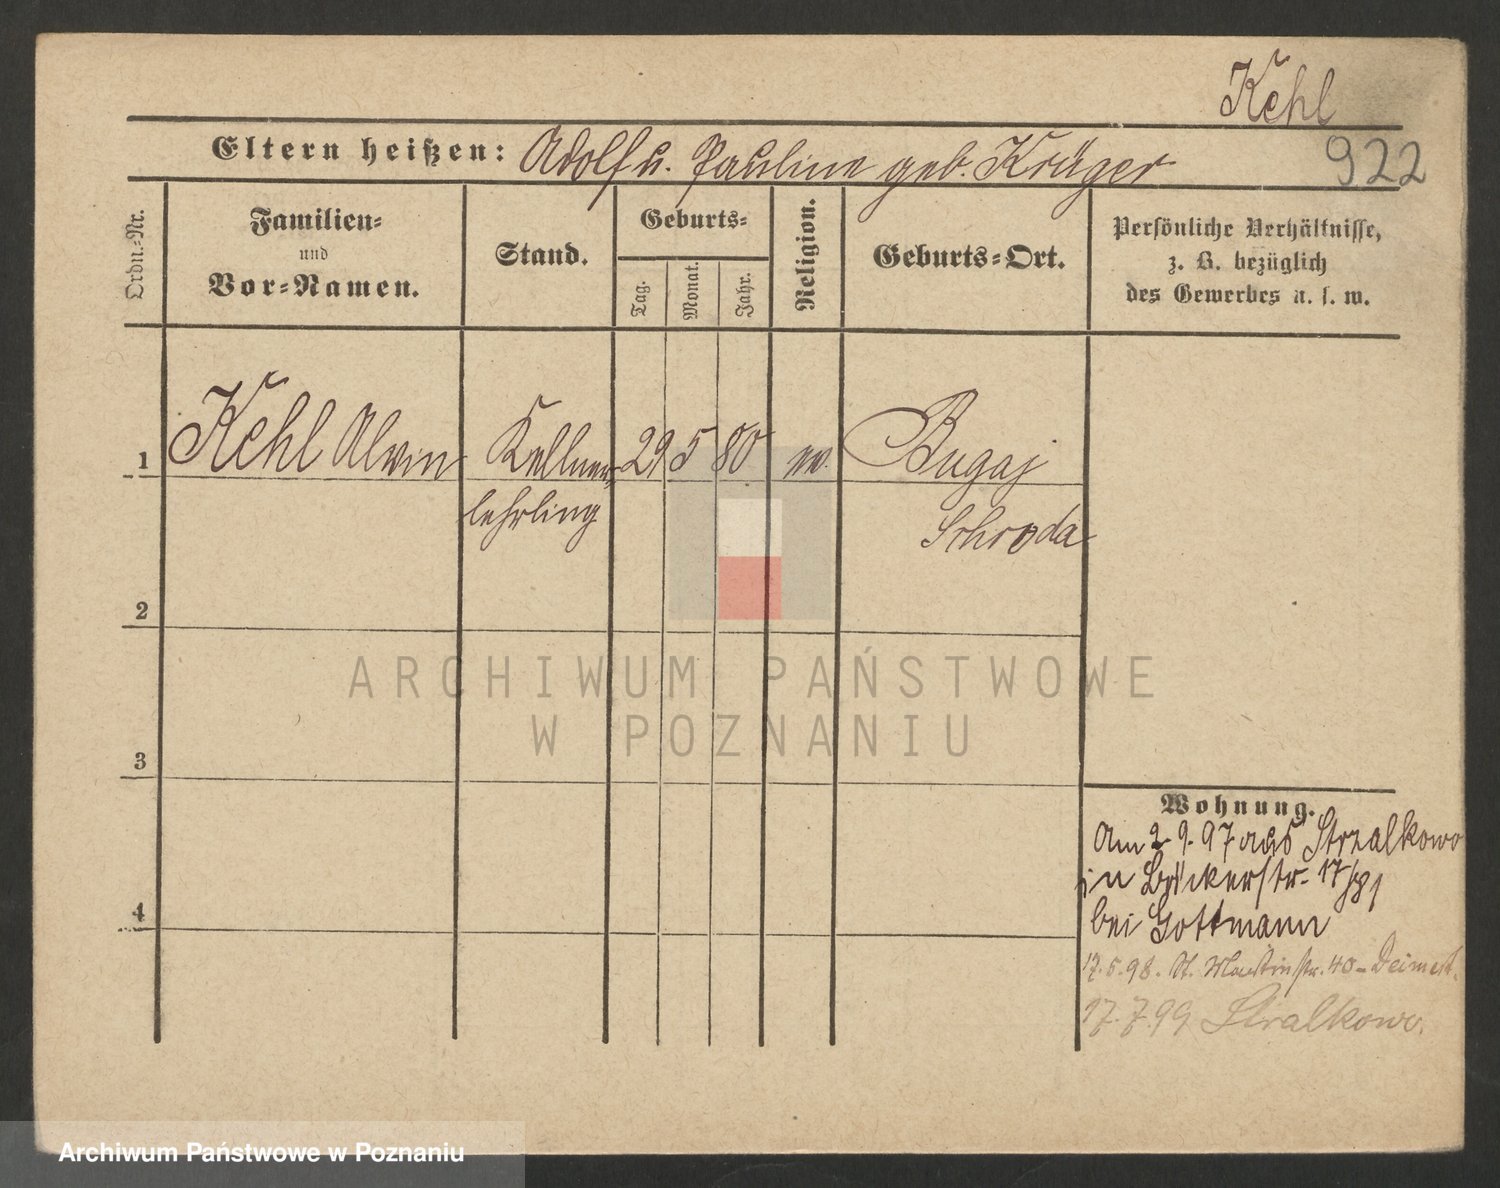 Kehl
922
Eltern heißen: Adolf u. Pauline geb. Krüger
Ordn.-Nr.
Familien-
und
Vor-Namen.
Stand.
Geburts-
Tag.
Monat.
Jahr.
Religion.
Geburts-Ort.
Persönliche Verhältnisse,
z. B. bezüglich
des Gewerbes u. s. w.
1 Kehl Alwin Kellner- 29 5 80 ev. Bugaj
lehrling Schroda
2
3
4
Wohnung.
Am 2.9.97 aus Strzalkowo
in Bäckerstr. 17/
bei Gottmann
17.5.98. St. Martinstr. 40-
17.7.99 Stralkowo.
ARCHIWUM PAŃSTWOWE
W POZNANIU
Archiwum Państwowe w Poznaniu